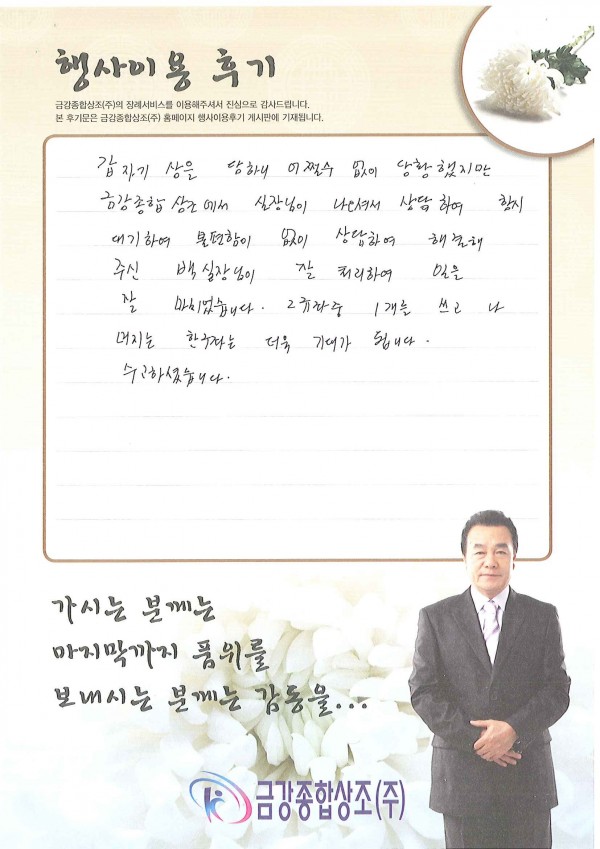 행사이용 후기
금강종합상조(주)의 장례서비스를 이용해주셔서 진심으로 감사드립니다.
본 후기문은 금강종합상조(주) 홈페이지 행사이용후기 게시판에 기재됩니다.
갑자기 상을 당하니 어쩔수 없이 당황했지만
금강종합상조에서 실장님이 나오셔서 상담하여 항시
대기하여 불편함이 없이 상담하여 해결해
주신 백실장님이 잘 처리하여 일을
잘 마치었습니다. 2구좌중 1개를 쓰고 나
머지는 한구좌는 더욱 기대가 됩니다.
수고하셨습니다.
가시는 분께는
마지막까지 품위를
보내시는 분께는 감동을...
금강종합상조(주)